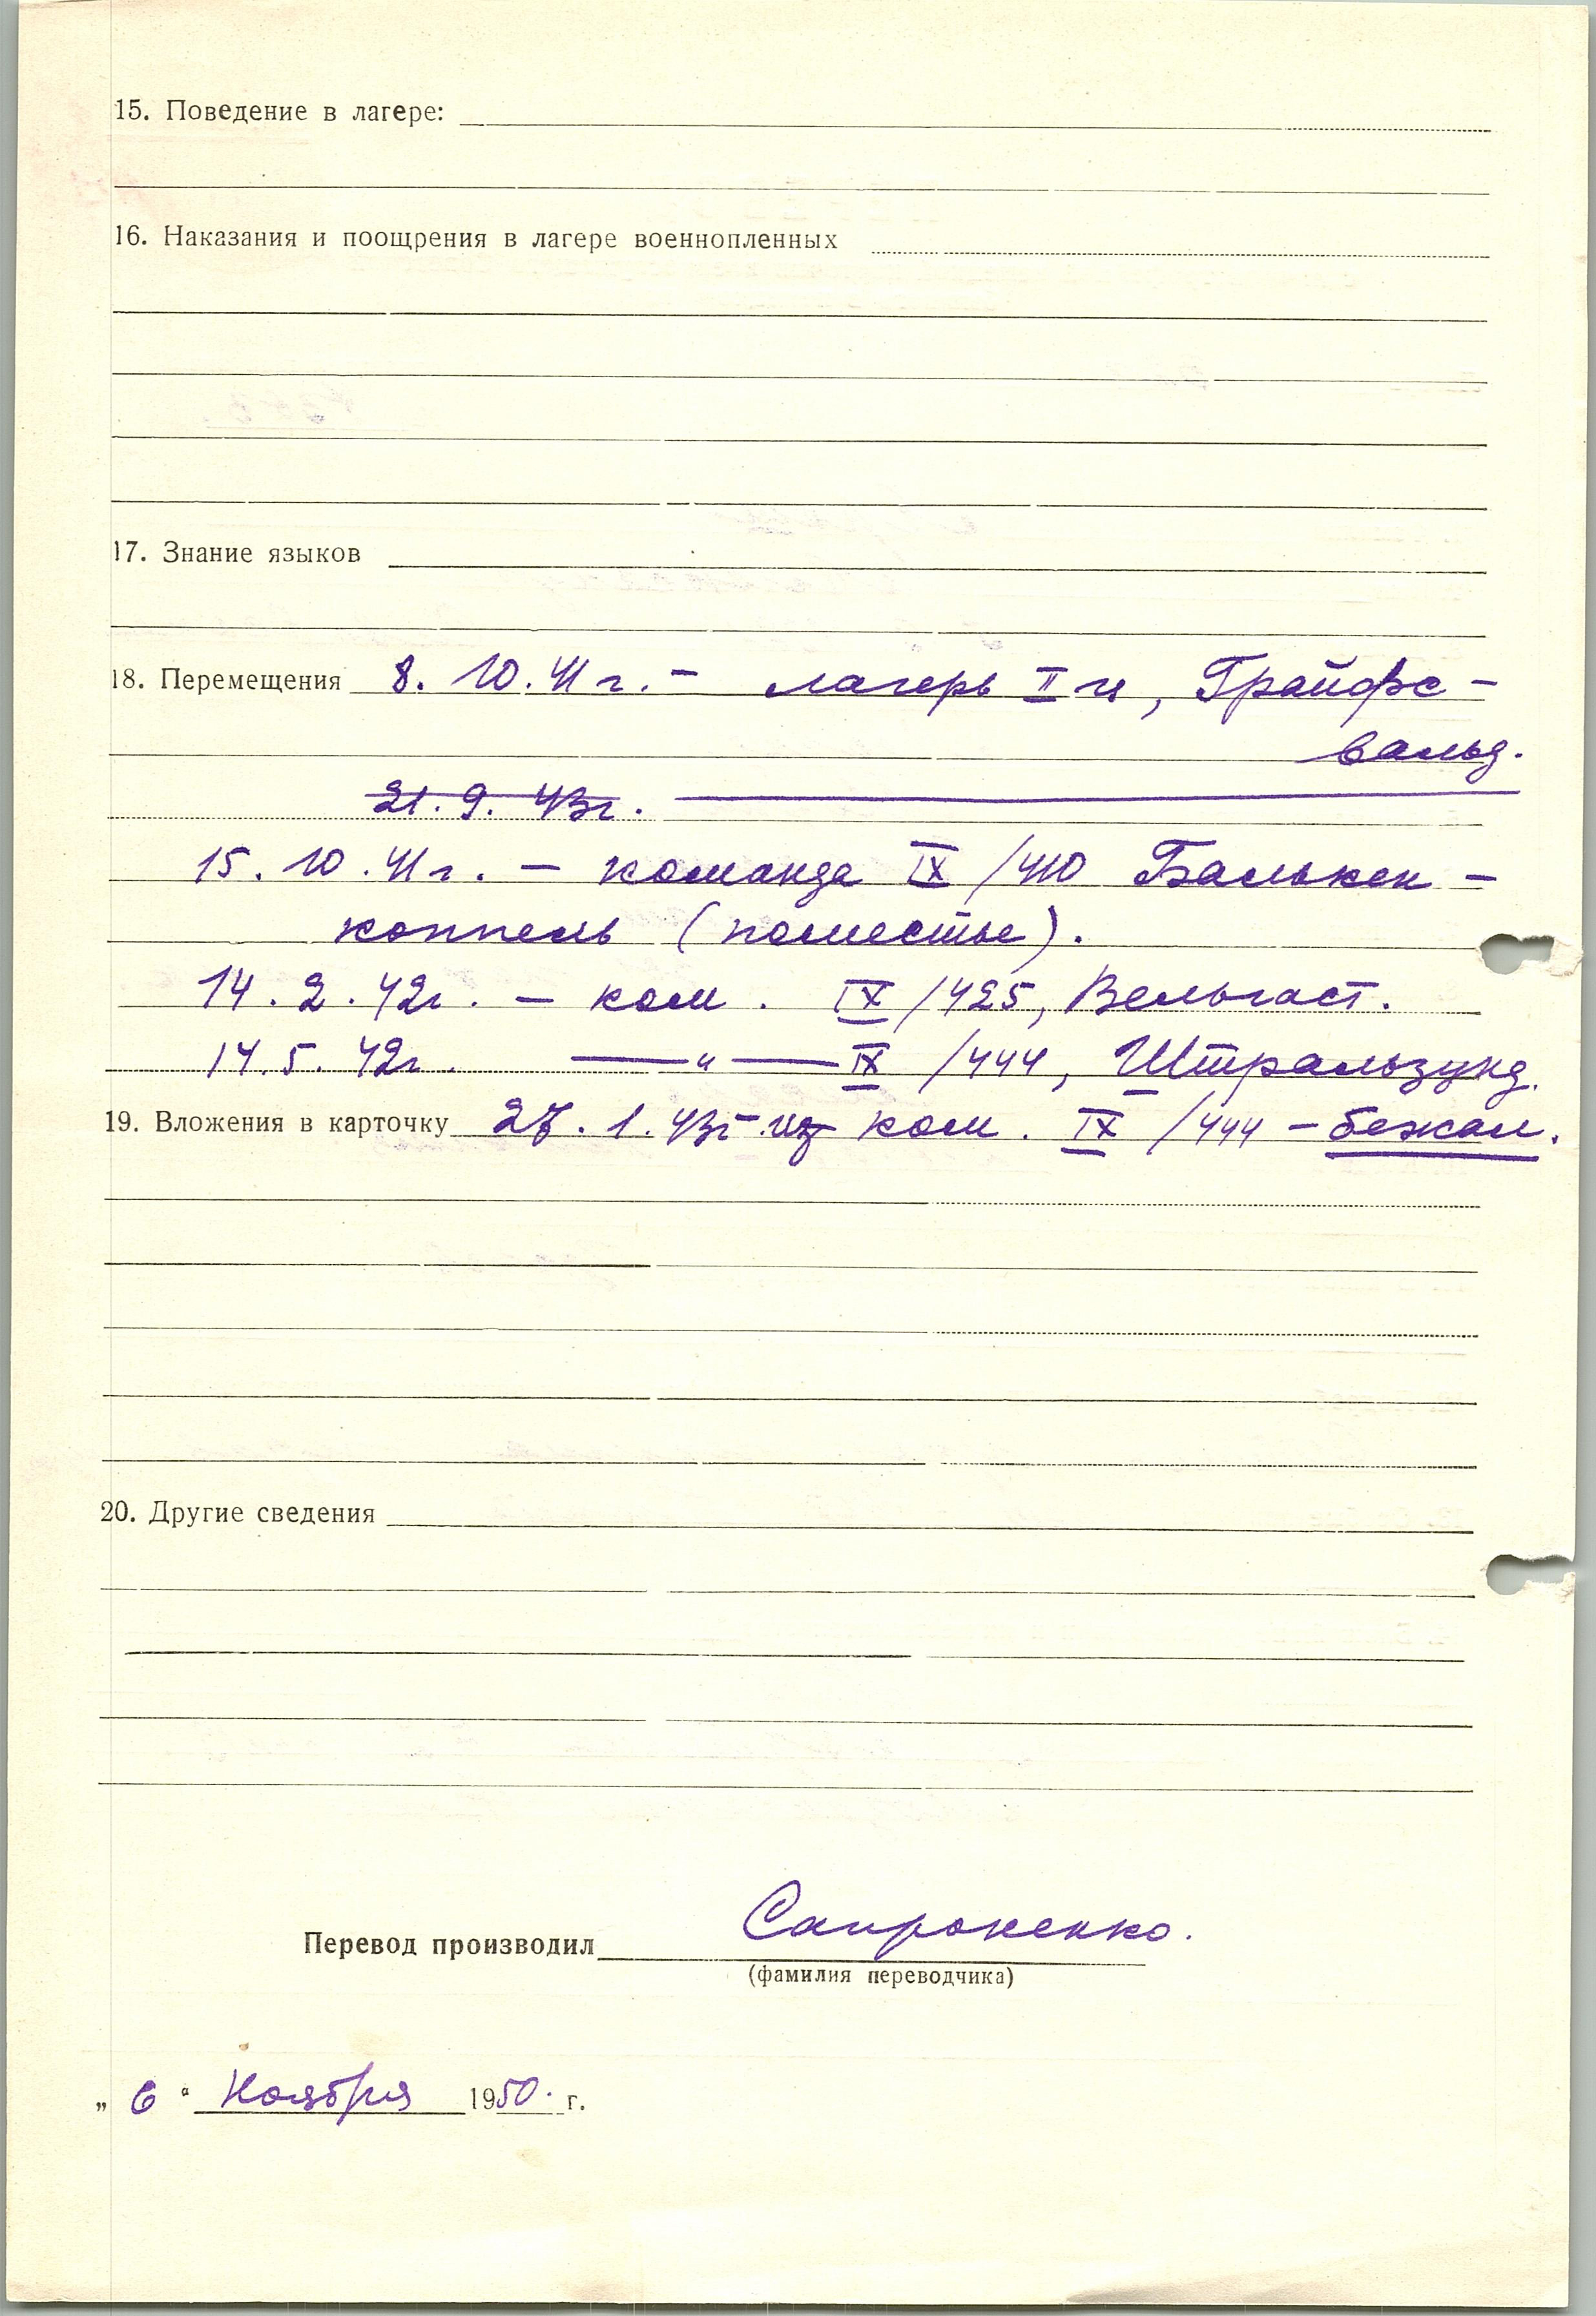 15. Поведение в лагере:
16. Наказания и поощрения в лагере военнопленных
17. Знание языков
18. Перемещения 8. 10. 41 г. – лагерь II ц, Грайфс–
вальд.
21. 9. 43г.
15. 10. 41 г. – команда IX /410 Балькен–
коппель (поместье).
14. 2. 42г. – ком. IX /425, Вельгаст.
14. 5. 42г. —"— IX /444, Штральзунд.
19. Вложения в карточку 27. 1. 43г – из ком. IX /444 – бежал.
20. Другие сведения
Перевод производил Сапроненко.
(фамилия переводчика)
„ 6 “ Ноября 1950. г.